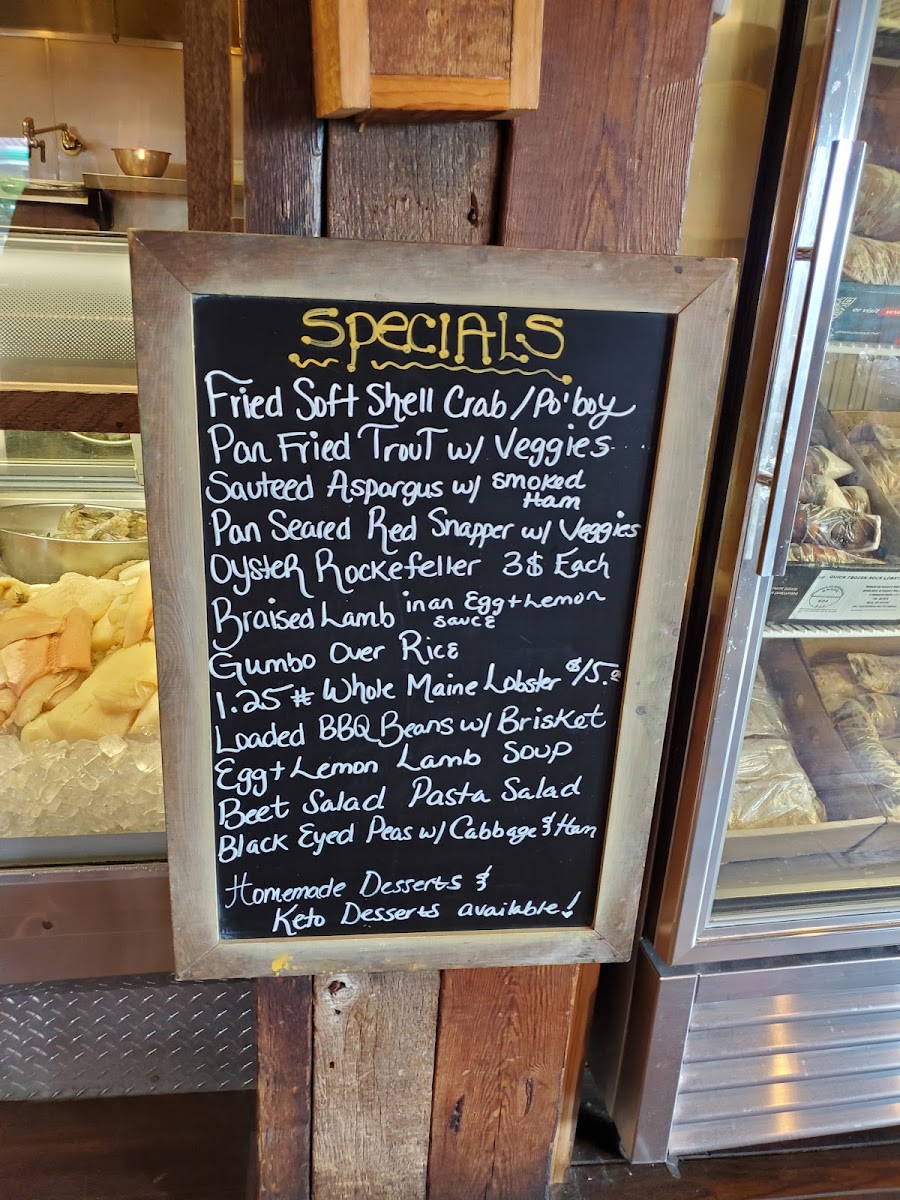 Specials
Fried Soft Shell Crab / Po'boy
Pan Fried Trout w/ Veggies
Sauteed Aspargus w/ smoked Ham
Pan Seared Red Snapper w/ Veggies
Oyster Rockefeller 3$ Each
Braised Lamb in an Egg + Lemon sauce
Gumbo Over Rice
1.25 # Whole Maine Lobster $15.00
Loaded BBQ Beans w/ Brisket
Egg + Lemon Lamb Soup
Beet Salad Pasta Salad
Black Eyed Peas w/ Cabbage & Ham
Homemade Desserts &
Keto Desserts available!
QUICK FROZEN ROCK LOBST